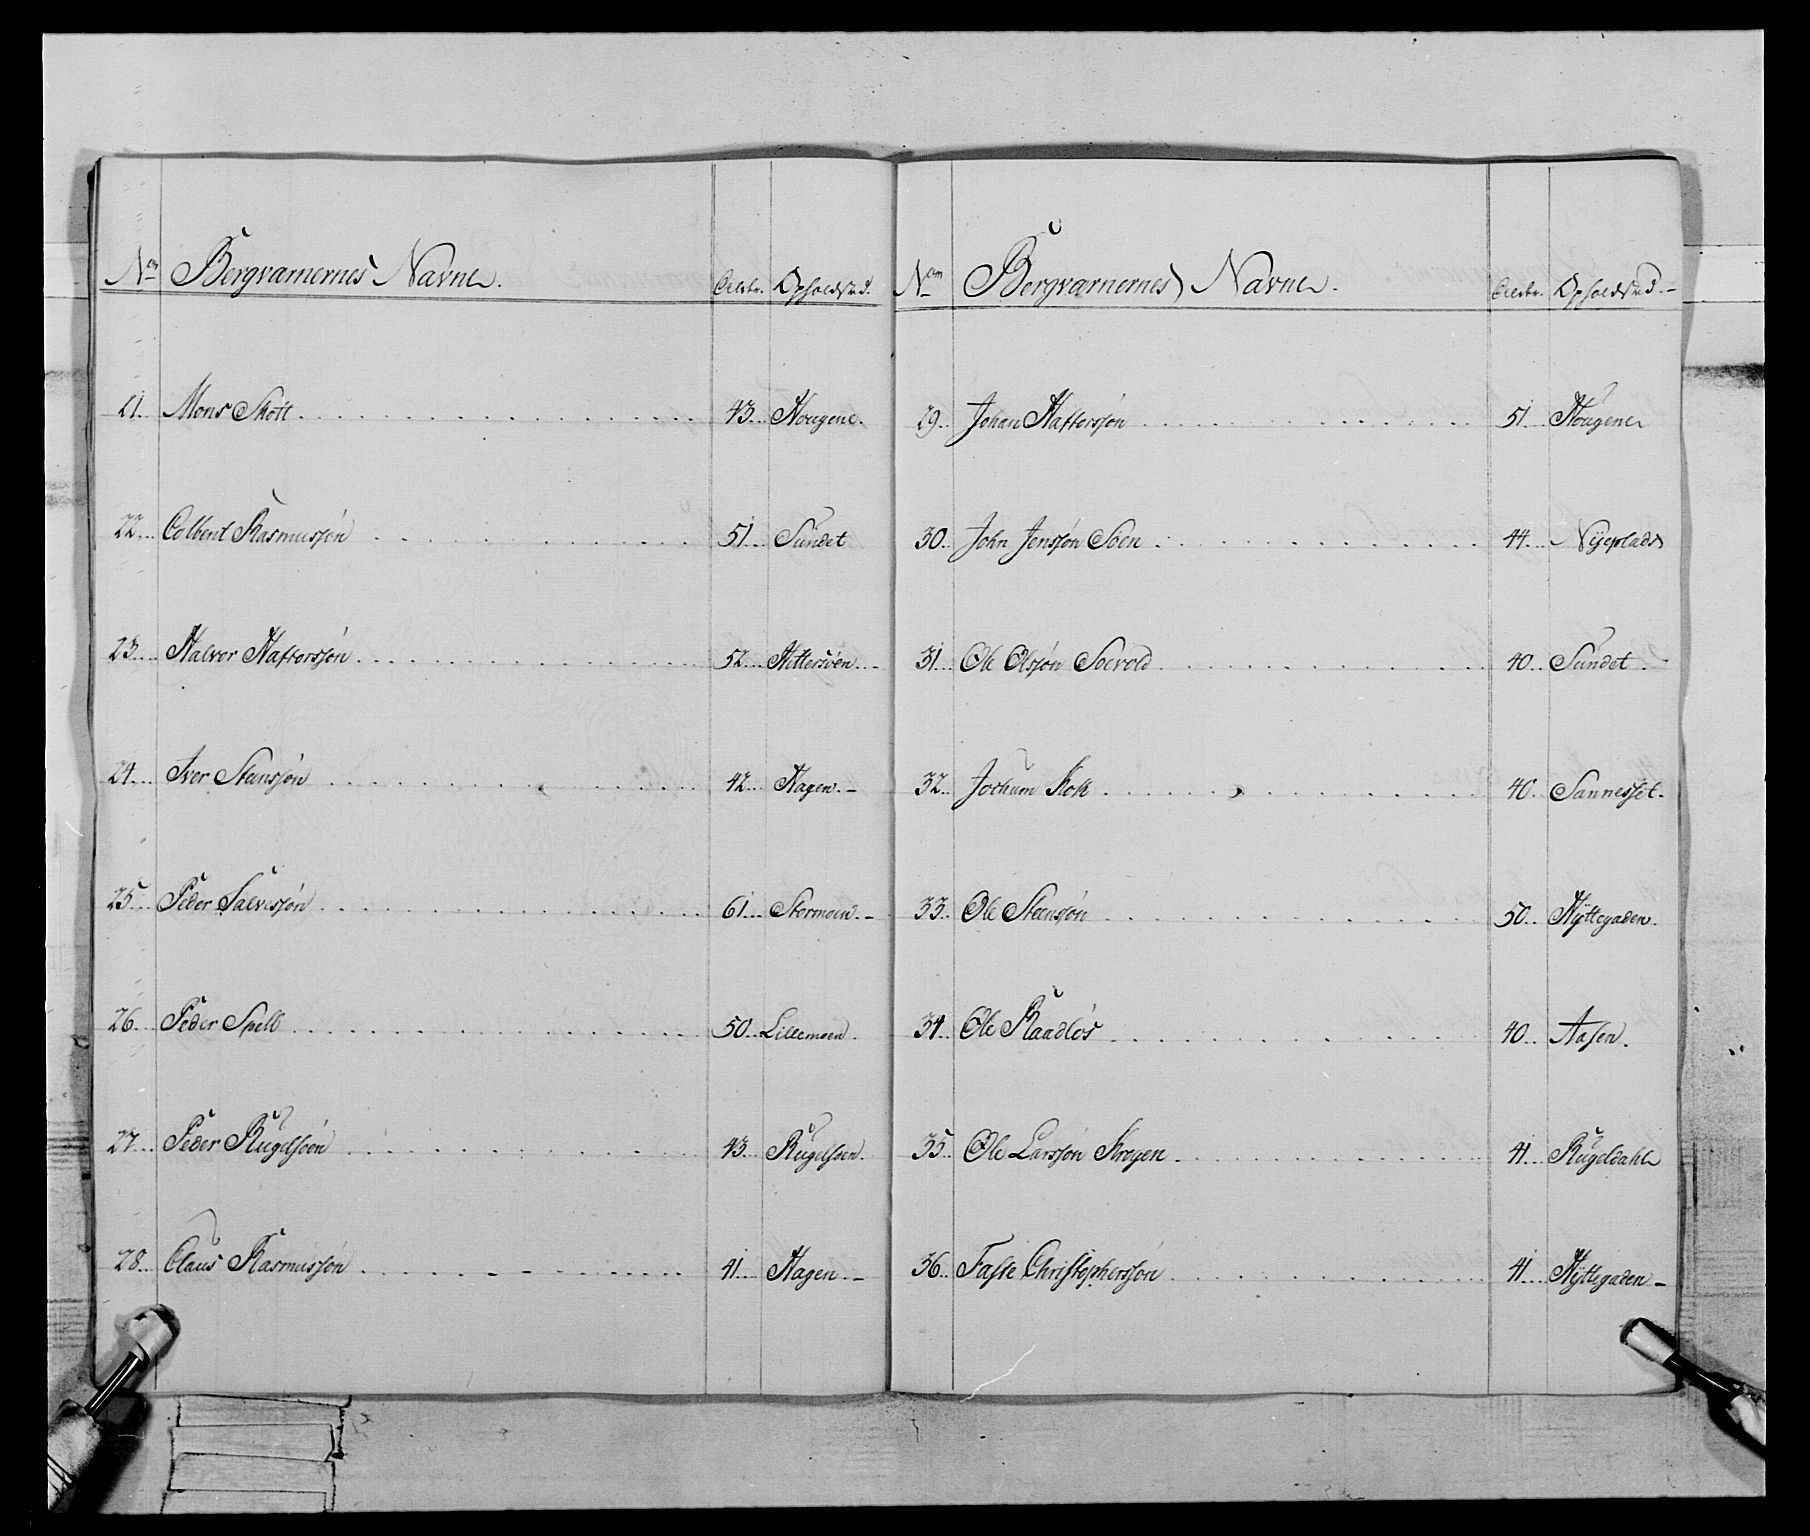 No Bergvarnernes Navne. Alder. Opholdsted.
21. Mons Skott 43. Hougene.
22. Colbent Rasmussøn 51. Sundet
23. Halvor Hafforssøn 52. Hittersøen.
24. Iver Steensøn 42. Hagen.
25. Peder Salvesøn 61. Stormoen.
26. Peder Spell 50. Lillemoen.
27. Peder Rugelsøen 43. Rugelsoen.
28. Claus Rasmussøn 41. Hagen.
No Bergvarnernes Navne. Alder. Opholdsted.
29. Johan Hafforssøn 51. Hougene
30. John Jensøn Soen 44. Nyeplads
31. Ole Olsøn Soevold 40. Sundet.
32. Jochum Kok 40. Sannesset.
33. Ole Steensøn 50. Hyttegaden.
34. Ole Raadløs 40. Aasen.
35. Ole Larssøn Krogen 41. Rugeldahl
36. Faste Christophersøn 41. Hyttegaden